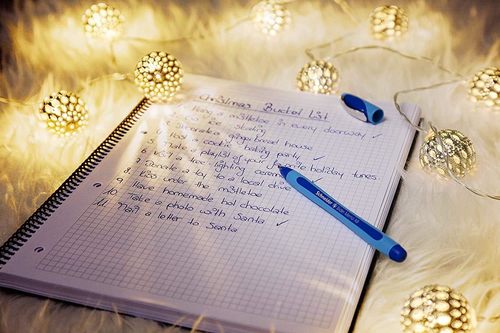 Christmas Bucket List
1. Hang a mistletoe in every doorway ✓
2. skating
3. Decorate a gingerbread house
4. Host a cookie baking party ✓
5. Make a playlist of your favorite holiday tunes
6. Visit a tree lighting ceremony
7. Donate a toy to a local drive
8. Kiss under the mistletoe
9. Have homemade hot chocolate
10. Take a photo with Santa
11. Mail a letter to Santa ✓
Schneider